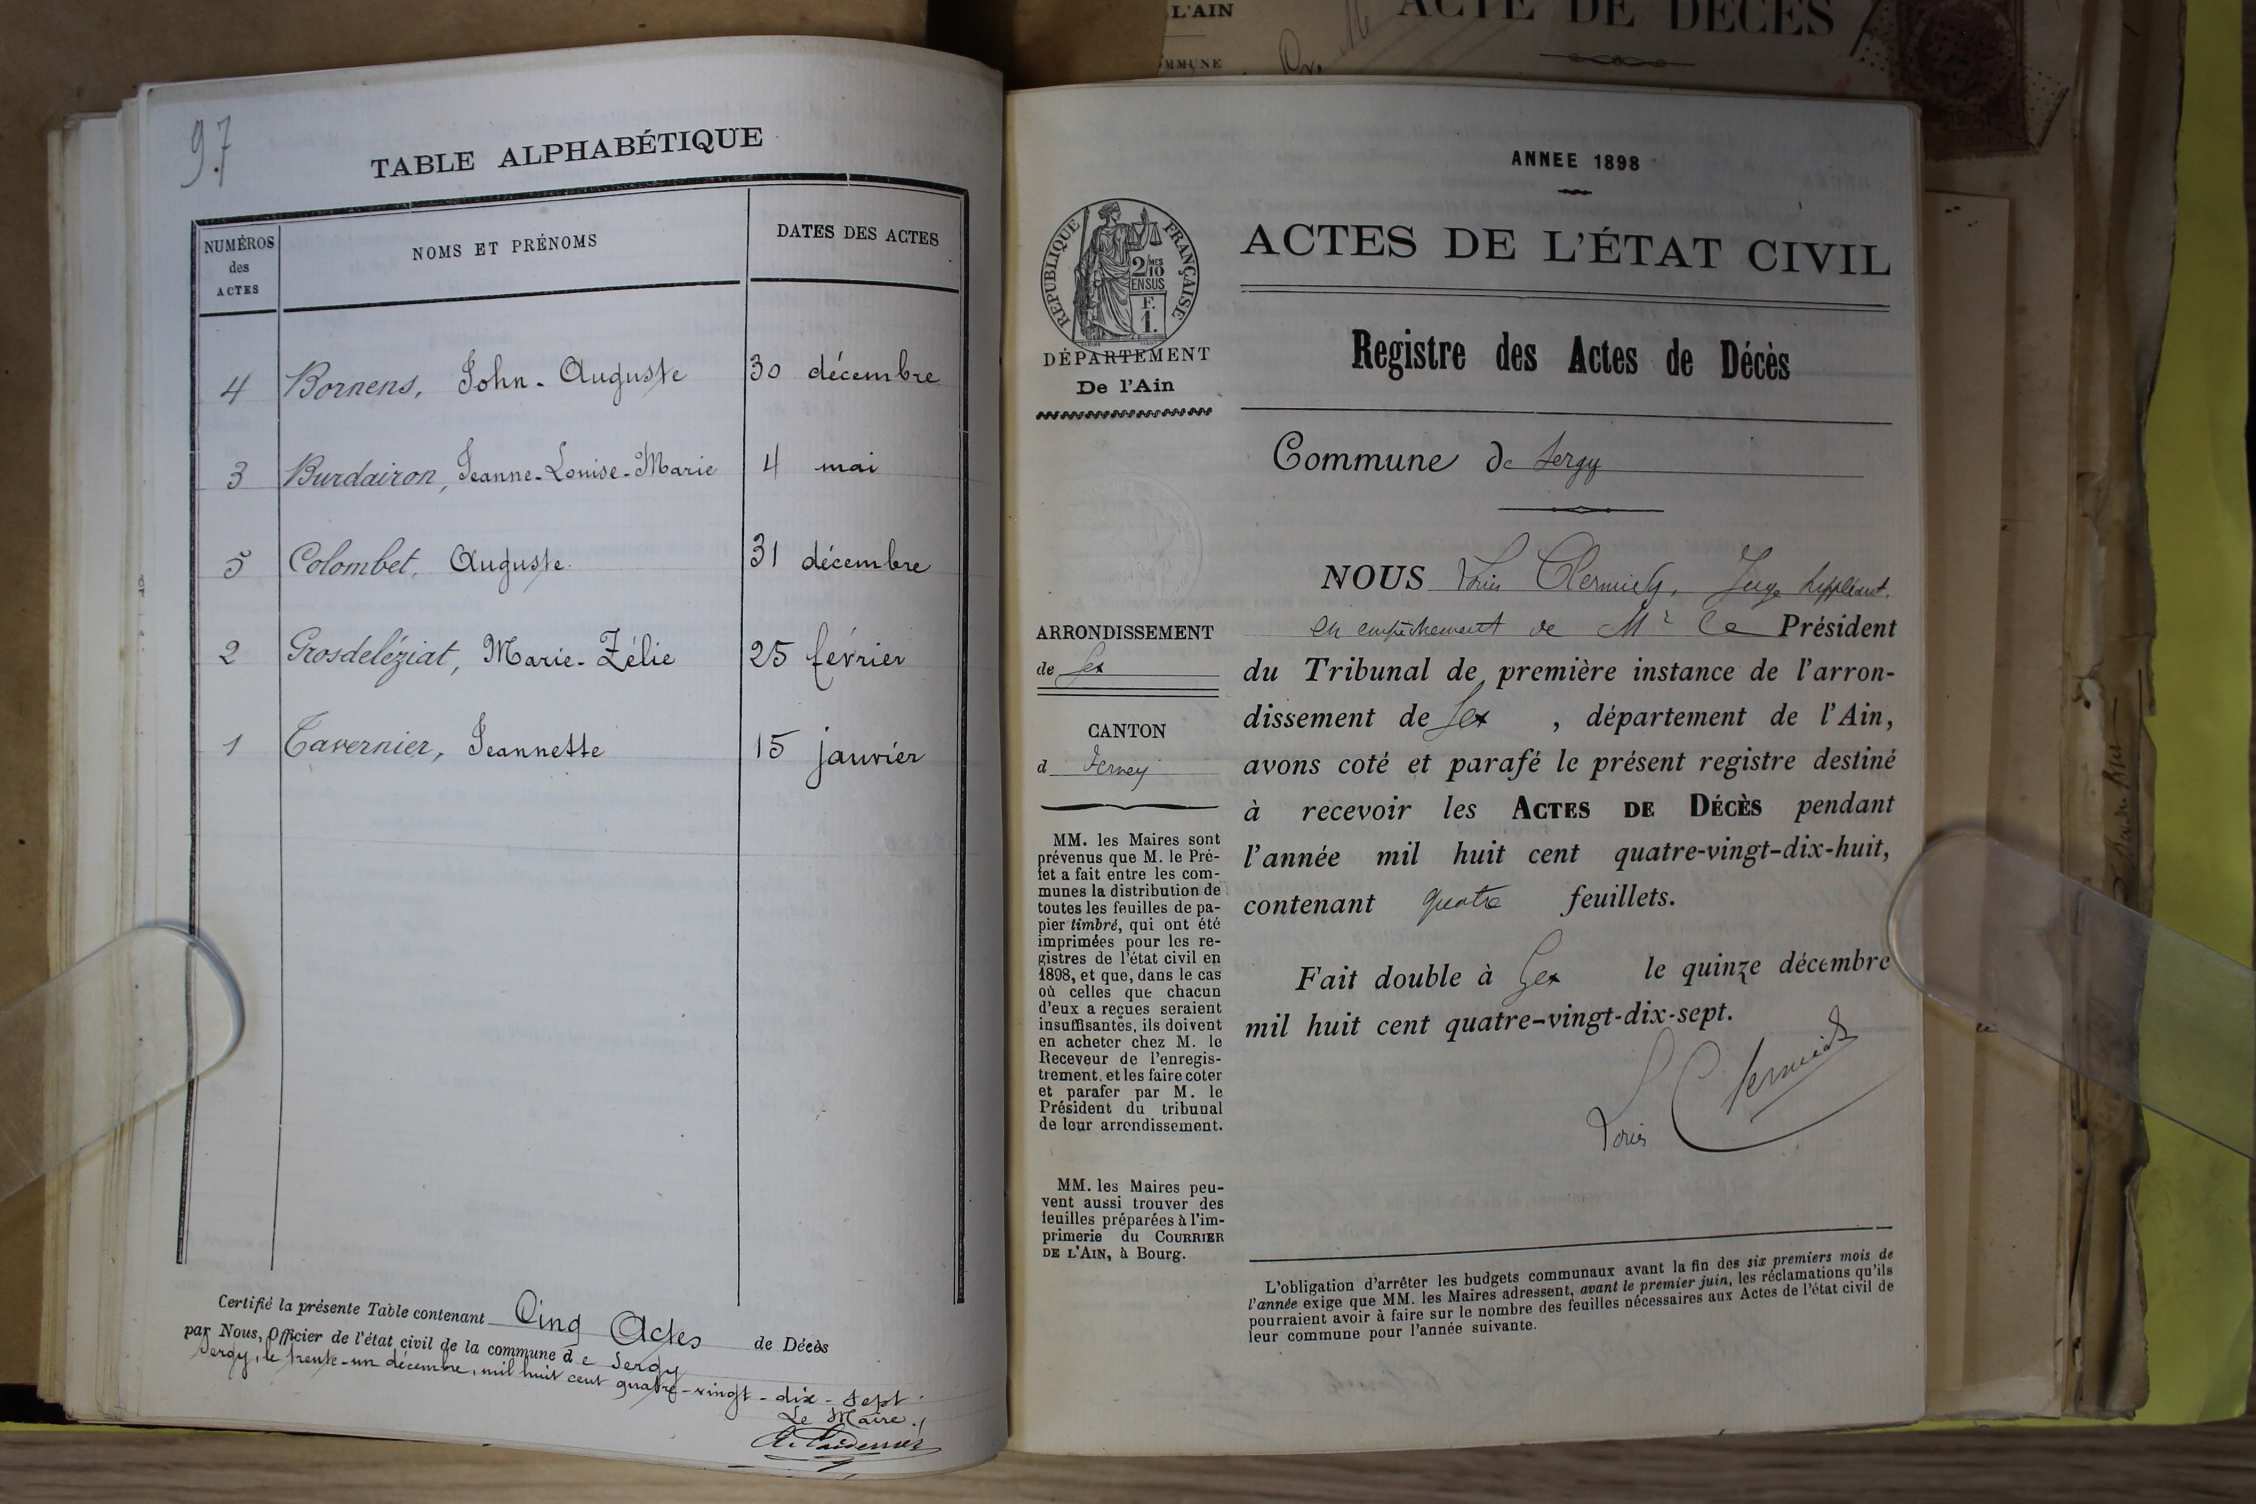 L'AIN
ACTE DE DÉCÈS
97
TABLE ALPHABÉTIQUE
NUMÉROS
des
ACTES
NOMS ET PRÉNOMS
DATES DES ACTES
4 Bornens, John-Auguste 30 décembre
3 Burdairon, Jeanne-Louise-Marie 4 mai
5 Colombet, Auguste 31 décembre
2 Grosdeléziat, Marie-Zélie 25 février
1 Tavernier, Jeannette 15 janvier
Certifié la présente Table contenant Cinq Actes de Décès
par Nous, Officier de l'état civil de la commune de Sergy
Sergy, le trente-un décembre, mil huit cent quatre-vingt-dix-sept.
Le Maire,
ANNEE 1898
ACTES DE L'ÉTAT CIVIL
Registre des Actes de Décès
RÉPUBLIQUE FRANÇAISE
2/10 MES
EN SUS
F.
1.
DÉPARTEMENT
De l'Ain
Commune de Sergy
ARRONDISSEMENT
de Gex
CANTON
d Ferney
MM. les Maires sont
prévenus que M. le Pré-
fet a fait entre les com-
munes la distribution de
toutes les feuilles de pa-
pier timbré, qui ont été
imprimées pour les re-
gistres de l'état civil en
1898, et que, dans le cas
où celles que chacun
d'eux a reçues seraient
insuffisantes, ils doivent
en acheter chez M. le
Receveur de l'enregis-
trement, et les faire coter
et parafer par M. le
Président du tribunal
de leur arrondissement.
MM. les Maires peu-
vent aussi trouver des
feuilles préparées à l'im-
primerie du COURRIER
DE L'AIN, à Bourg.
NOUS Louis Juge suppléant,
en empêchement de Mr le Président
du Tribunal de première instance de l'arron-
dissement de Gex , département de l'Ain,
avons coté et parafé le présent registre destiné
à recevoir les ACTES DE DÉCÈS pendant
l'année mil huit cent quatre-vingt-dix-huit,
contenant quatre feuillets.
Fait double à Gex le quinze décembre
mil huit cent quatre-vingt-dix-sept.
Louis
L'obligation d'arrêter les budgets communaux avant la fin des six premiers mois de
l'année exige que MM. les Maires adressent, avant le premier juin, les réclamations qu'ils
pourraient avoir à faire sur le nombre des feuilles nécessaires aux Actes de l'état civil de
leur commune pour l'année suivante.